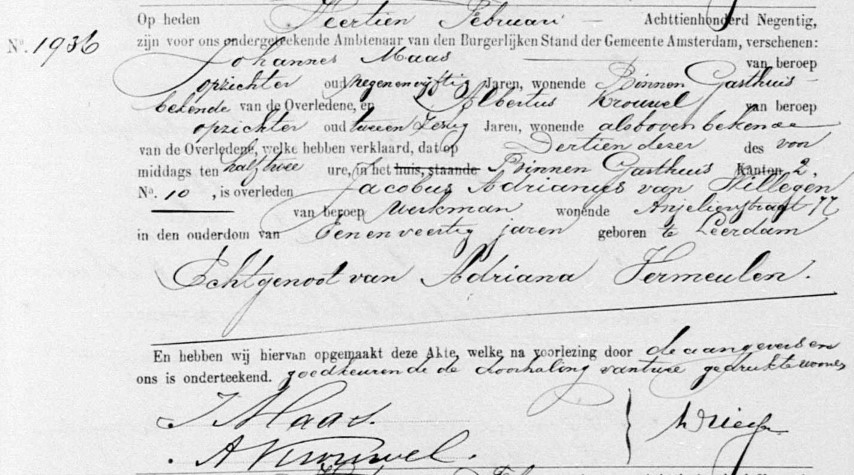 Op heden Veertien Februari Achttienhonderd Negentig,
No. 1936 zijn voor ons ondergeteekende Ambtenaar van den Burgerlijken Stand der Gemeente Amsterdam, verschenen:
Johannes Maas van beroep
opzichter oud negenenvijftig Jaren, wonende Binnen Gasthuis
bekende van de Overledene, en Albertus Krouwel van beroep
opzichter oud twee en zestig Jaren, wonende alsboven bekende
van de Overledene, welke hebben verklaard, dat op Dertien dezer des voor
middags ten half twee ure, in het huis, staande Binnen Gasthuis Kanton 2,
No. 10, is overleden Jacobus Adrianus van Hillegen
van beroep Werkman wonende Anjelierstraat 77
in den ouderdom van Eenenveertig jaren geboren te Leerdam
Echtgenoot van Adriana Vermeulen.
En hebben wij hiervan opgemaakt deze Akte, welke na voorlezing door de aangevers en
ons is onderteekend. goedkeurende de doorhaling van twee gedrukte woorden
J Maas.
A Krouwel.